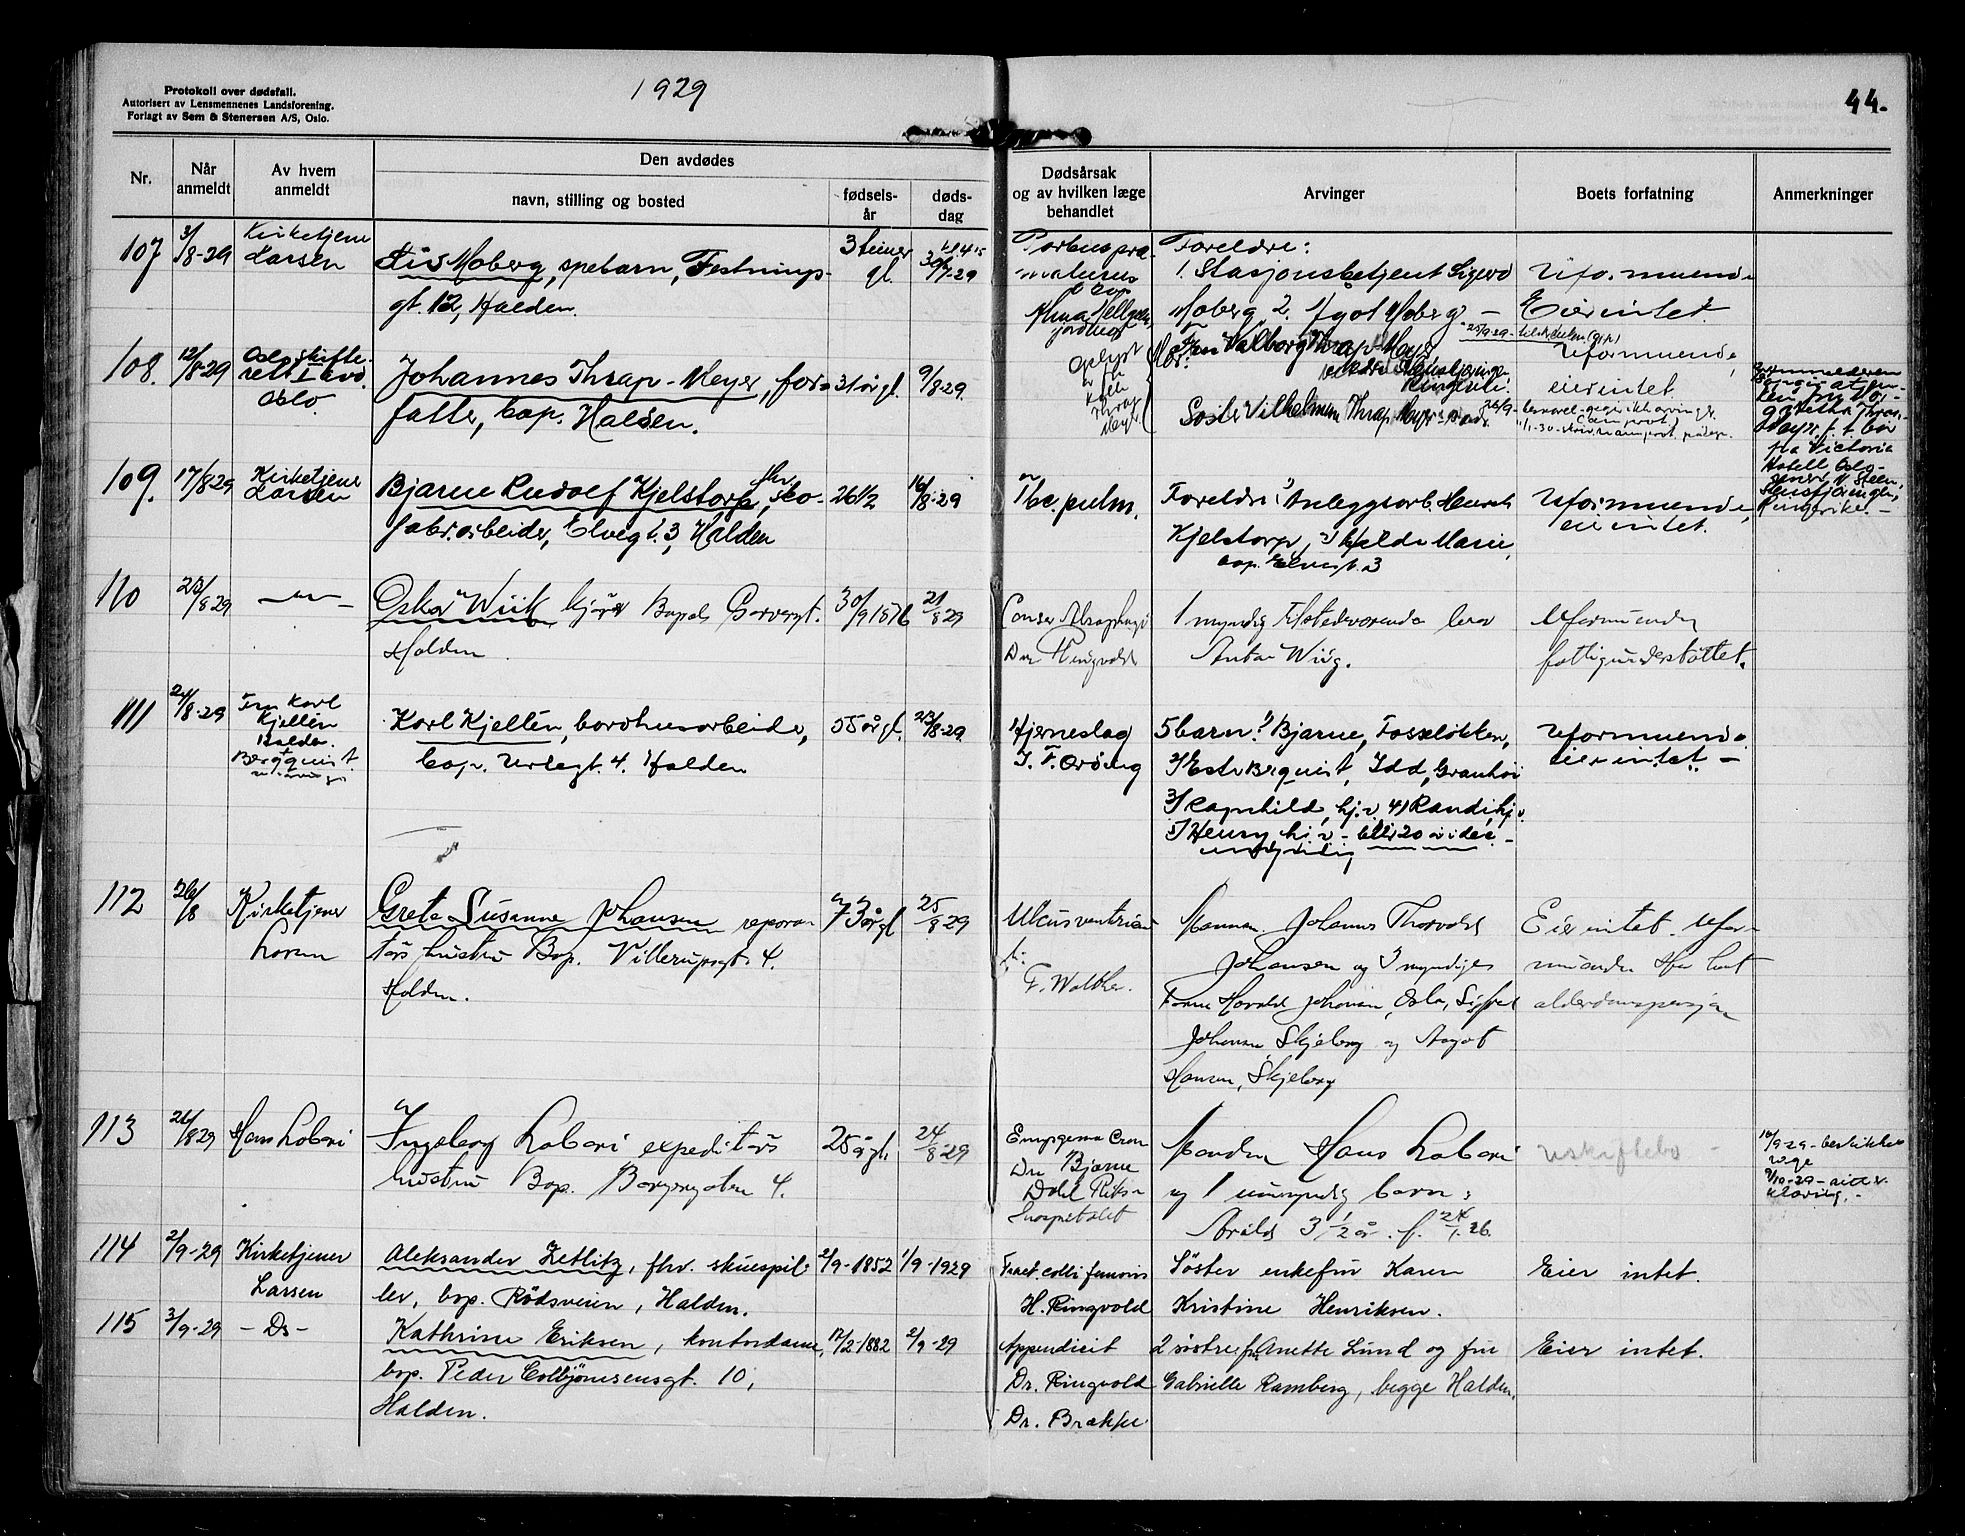 Protokoll over dødsfall.
Autorisert av Lensmennenes Landsforening.
Forlagt av Sem & Stenersen A/S, Oslo.
1929
44.
Nr.
Når anmeldt
Av hvem anmeldt
Den avdødes
navn, stilling og bosted
fødsels-år
døds-dag
Dødsårsak og av hvilken læge behandlet
Arvinger
Boets forfatning
Anmerkninger
107 3/8-29 Kirketjene Larsen
Lis Moberg, spebarn, Festnings-
gt. 12, Halden.
3 timer gl. 30/7-29
Foreldre:
1. Stasjonsbetjent Sigurd
Moberg 2. Moberg -
Uformuende
Eier intet.
108. 12/8-29 Oslo skifte-
rett I avd. Oslo.
Johannes Thrap-Meyer, for-
fatter, bop. Halden.
31 år gl. 9/8-29
Oplyst
Thrap
Mor: Valborg Thrap Meyer
Søster Vilhelmine Thrap Meyer
Uformuende,
eier intet.
fra Victoria
Hotell Oslo
Ringerike. -
109. 17/8-29 Kirketjener Larsen
Bjarne Rudolf Kjelstorp, fhv. sko-
fabr. arbeider, Elvegt. 3, Halden
26 1/2 16/8-29
Tbc. pulm.
Foreldre: 1) Anleggsarb. Henrik
Kjelstorp, 2) Hulda Marie,
bop. Elvegt. 3
Uformuende,
eier intet.
110 23/8 29 -"-
Oskar Wiik Bopel Garvergt.
Halden
30/9 1876 21/8 29
Cancer
Dr. Ringvold
1 myndig tilstedeværende bror
Anton Wiig.
Uformuende
fattigunderstøttet.
111 24/8-29 Fru Karl
Kjellén
Halden
Bergquist
Karl Kjellén, bordhusarbeider,
bop. Urtegt. 4. Halden
55 år gl. 23/8-29
Hjerneslag
5 barn: 1) Bjarne, Fosseløkken,
2) Ester Berquist, Idd, Granhøi
3) Ragnhild, hj.v. 4) Randi, hj.v.
5) Henry hj.v. - blir 20 i des. -
umyndig
Uformuende
eier intet -
112 26/8 Kirketjener
Larsen
Grete Susanne Johansen repara-
tørs hustru Bop. Villerupsgt. 4.
Halden.
73 år gl 25/8 29
Ulcus ventricu-
li:
F. Walther.
Mannen Johannes Thorvald
Johansen og 3 myndige
barn Harald Johansen, Oslo, Sigfred
Johansen Skjeberg og Aagot
Hansen, Skjeberg
Eier intet. Ufor-
muende
alderdomspensjon
113 26/8 29 Hans Labori
Ingeborg Labori expeditørs
hustru Bop. Borgergaten 4.
25 år gl. 24/8-29
Empyema
Dr. Bjarne
Dahl Riks-
hospitalet
Manden Hans Labori
og 1 umyndig barn:
Arild 3 1/2 år. f. 24/1. 26.
uskiftebo -
10/9 29 -
uge
114 2/9-29 Kirketjener
Larsen
Aleksander Zetlitz, fhv. skuespil-
ler, bop. Rødsveien, Halden.
2/9-1852 1/9-1929
Fract. colli femoris
H. Ringvold
Søster enkefru Karen
Kristine Henriksen.
Eier intet.
115 3/9-29 - Do -
Kathrine Eriksen, kontordame,
bop. Peder Colbjørnsensgt. 10,
Halden.
17/2-1882 2/9-29
Appendicit
Dr. Ringvold
Dr. Brække
2 søstre: fru Anette Lund og fru
Gabrielle Ramberg, begge Halden.
Eier intet.